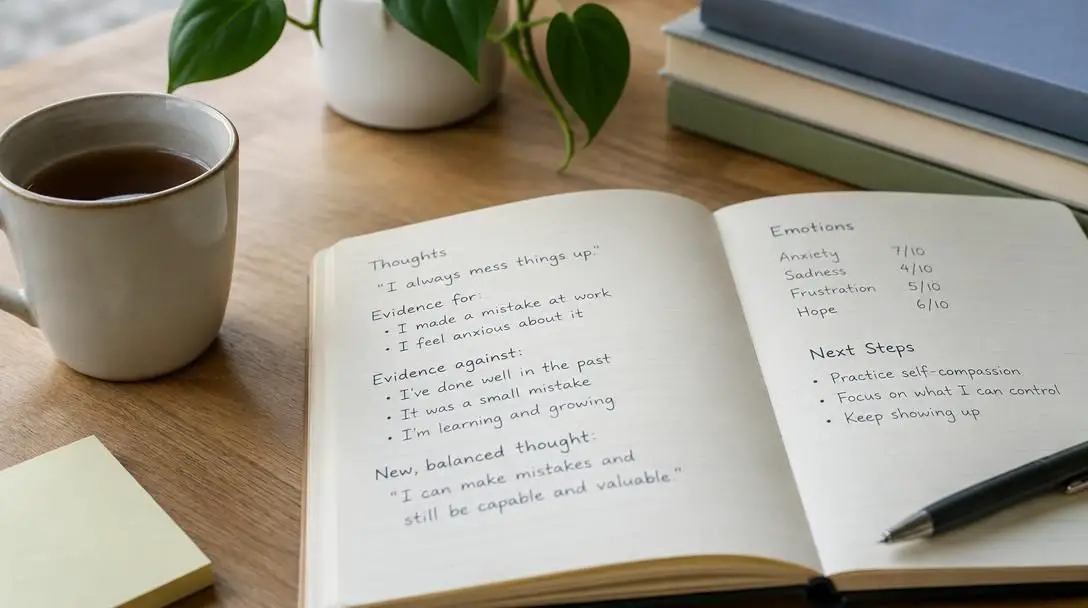 Thoughts
"I always mess things up."
Evidence for:
• I made a mistake at work
• I feel anxious about it
Evidence against:
• I've done well in the past
• It was a small mistake
• I'm learning and growing
New, balanced thought:
"I can make mistakes and
still be capable and valuable."
Emotions
Anxiety 7/10
Sadness 4/10
Frustration 5/10
Hope 6/10
Next Steps
• Practice self-compassion
• Focus on what I can control
• Keep showing up